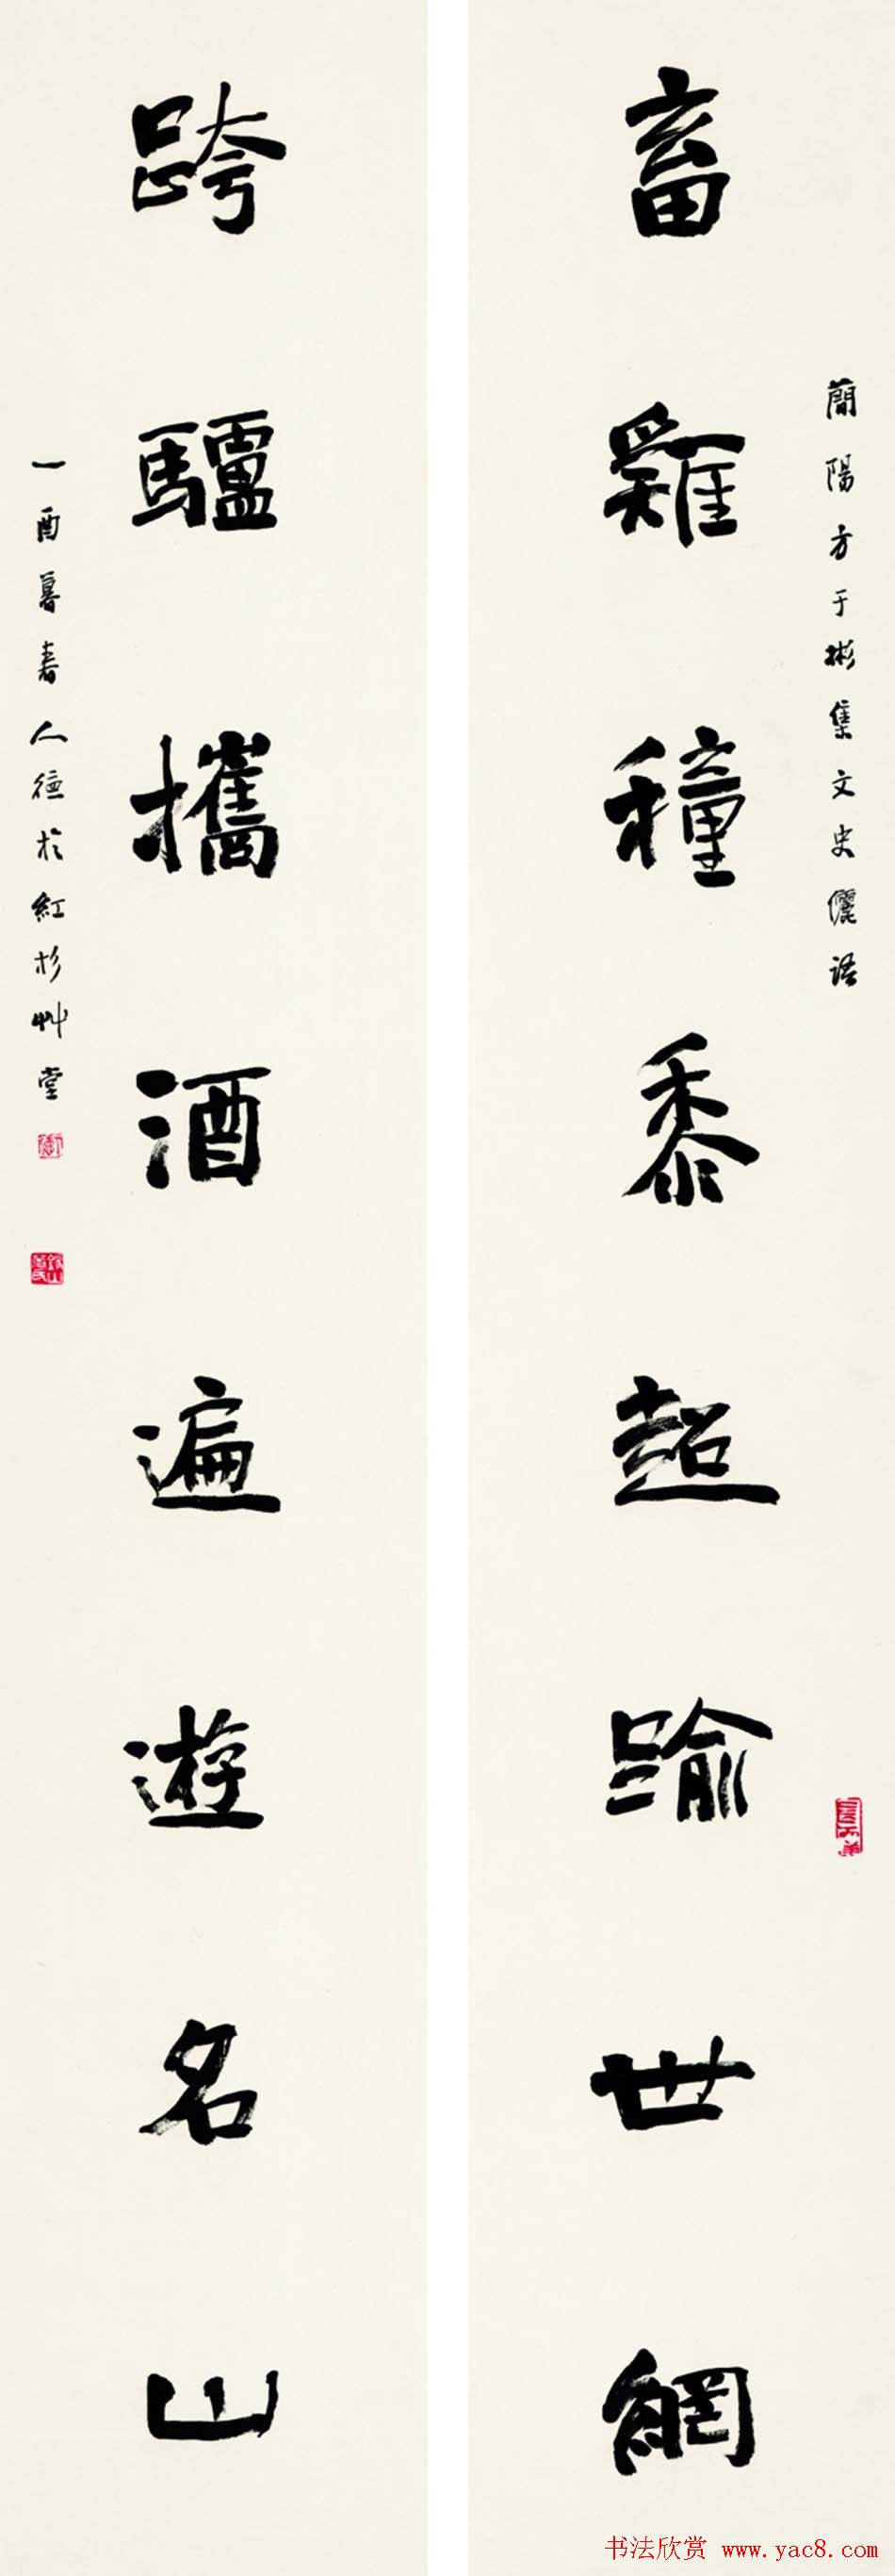 簡陽方于彬集文史儷語
畜雞種黍超踰世網
跨驢攜酒遍遊名山
酉暮春人德於紅杉艸堂
书法欣赏 www.yac8.com